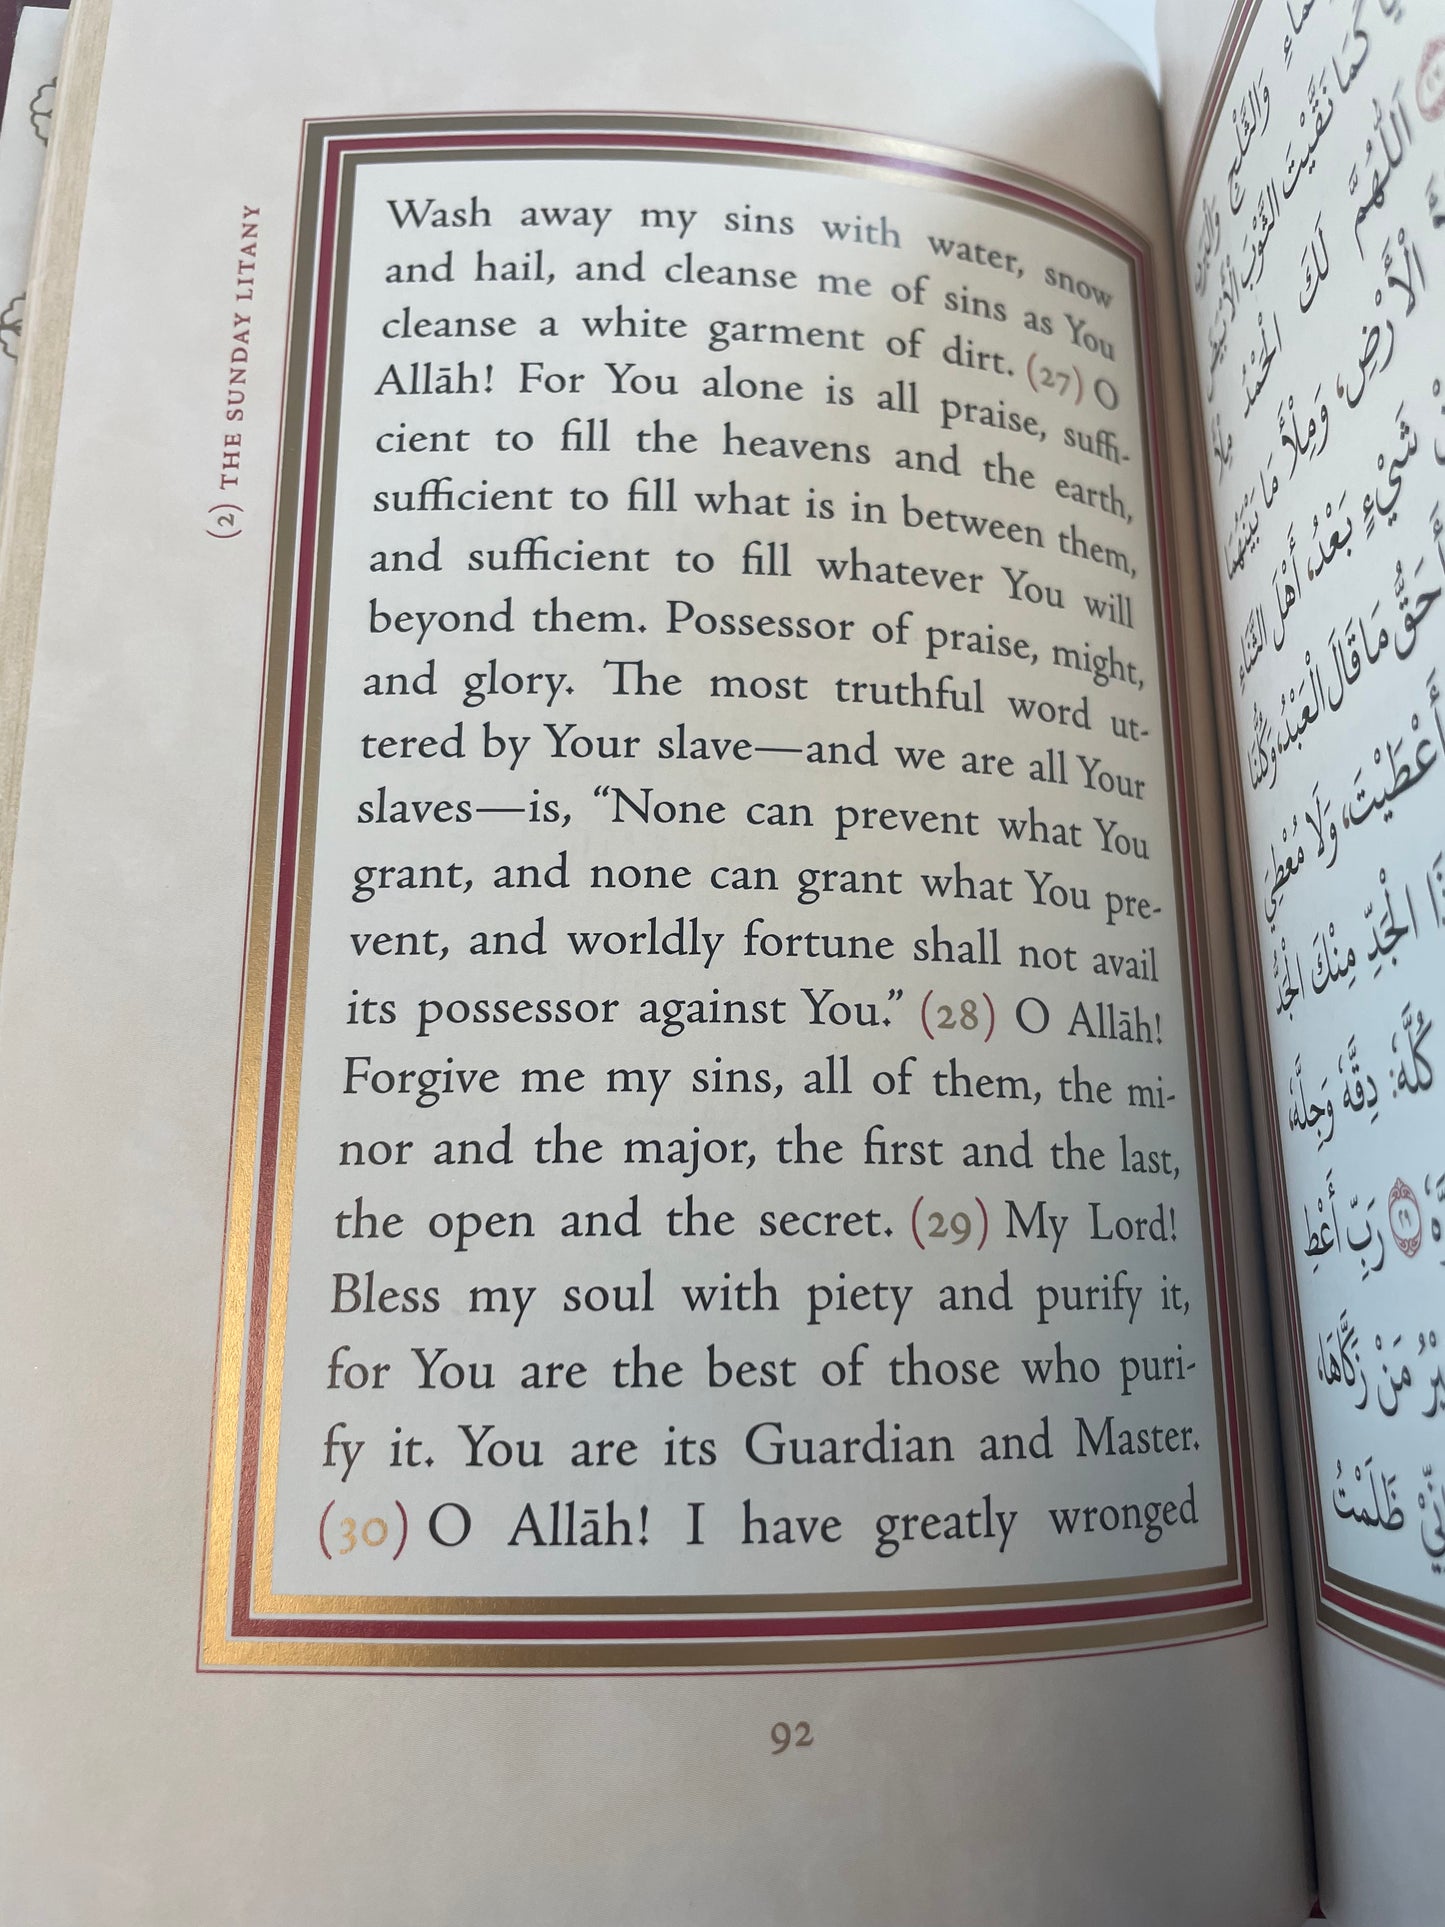 (2) THE SUNDAY LITANY
Wash away my sins with water, snow
and hail, and cleanse me of sins as You
cleanse a white garment of dirt. (27) O
Allāh! For You alone is all praise, suffi-
cient to fill the heavens and the earth,
sufficient to fill what is in between them,
and sufficient to fill whatever You will
beyond them. Possessor of praise, might,
and glory. The most truthful word ut-
tered by Your slave—and we are all Your
slaves—is, “None can prevent what You
grant, and none can grant what You pre-
vent, and worldly fortune shall not avail
its possessor against You.” (28) O Allāh!
Forgive me my sins, all of them, the mi-
nor and the major, the first and the last,
the open and the secret. (29) My Lord!
Bless my soul with piety and purify it,
for You are the best of those who puri-
fy it. You are its Guardian and Master.
(30) O Allāh! I have greatly wronged
92
وَالثَّلْجِ
كَمَا نَقَّيْتَ الثَّوْبَ الْأَبْيَضَ
اَللّٰهُمَّ لَكَ الْحَمْدُ
الْأَرْضِ، وَمِلْأَ مَا بَيْنَهُمَا
شَيْءٍ بَعْدُ، أَهْلَ الثَّنَاءِ
أَحَقُّ مَا قَالَ الْعَبْدُ، وَكُلُّنَا
أَعْطَيْتَ، وَلَا مُعْطِيَ
الْجَدِّ مِنْكَ الْجَدُّ
كُلَّهُ: دِقَّهُ وَجِلَّهُ،
٢٩ رَبِّ أَعْطِ
مَنْ زَكَّاهَا،
ظَلَمْتُ